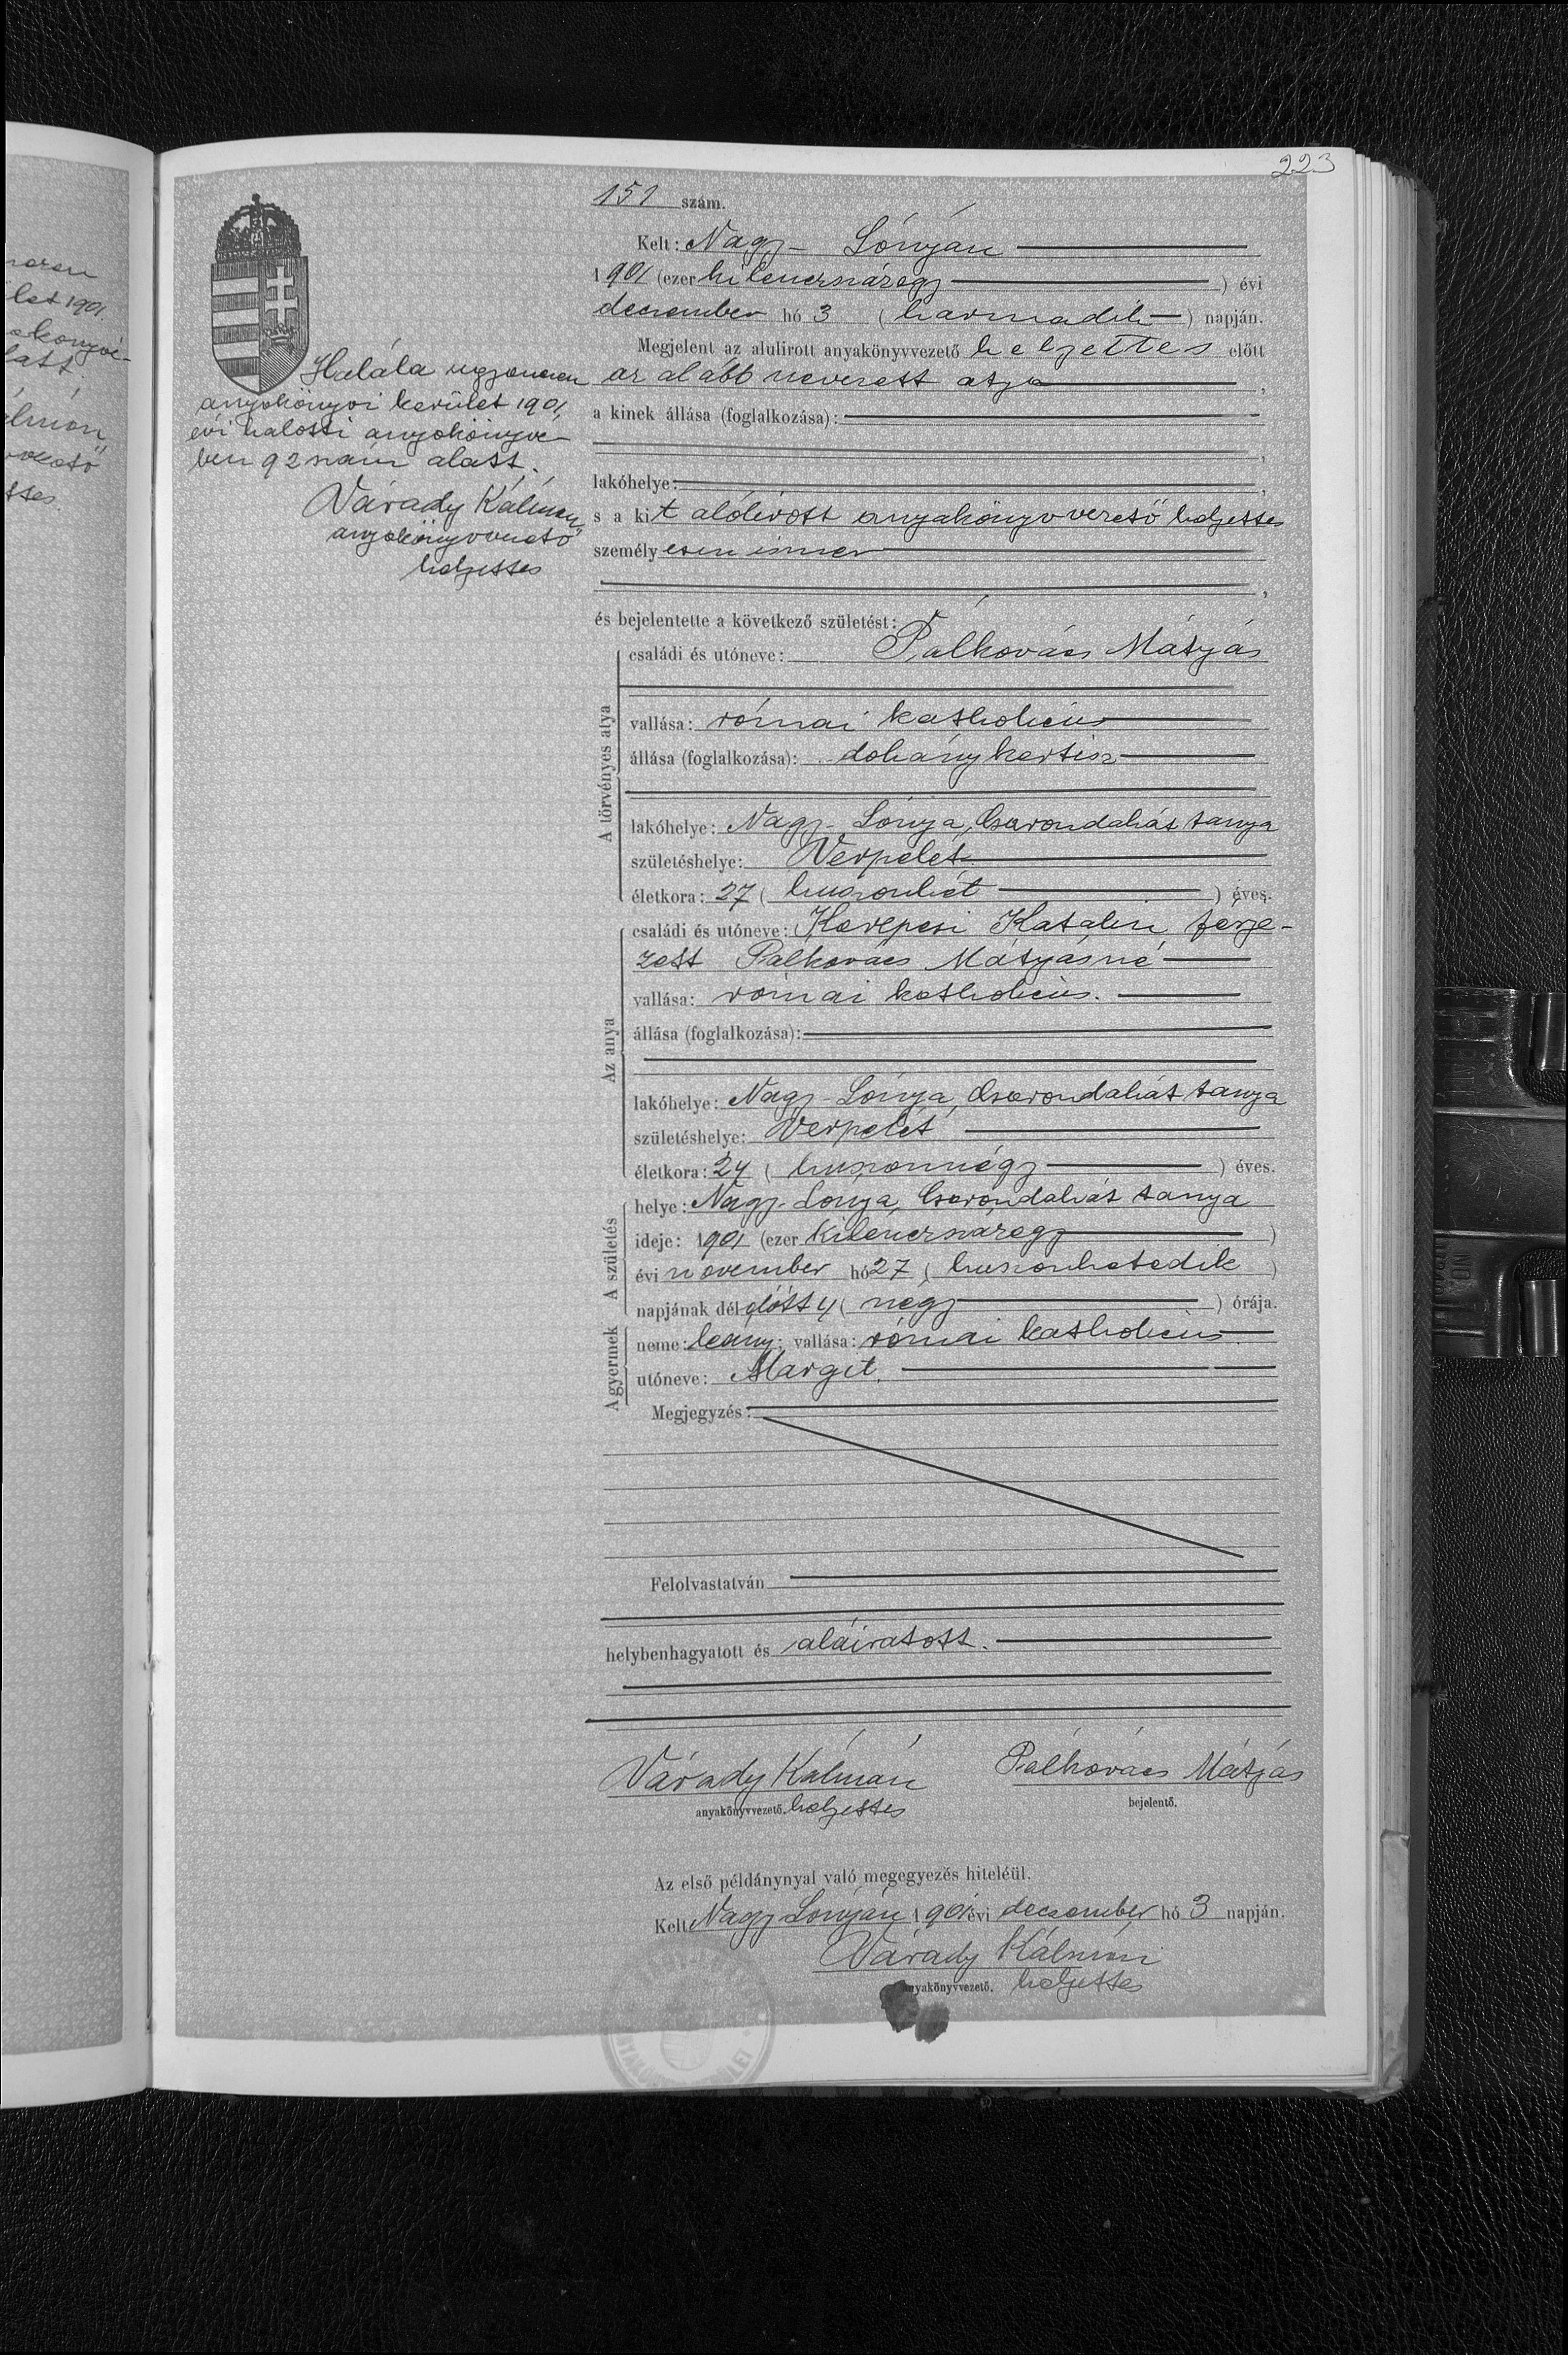 223
151 szám.
Kelt: Nagy-Lónyán
1901 (ezer kilenczszázegy) évi
deczember hó 3 (harmadik) napján.
Megjelent az alulirott anyakönyvvezető helyettes előtt
az alább nevezett atya,
a kinek állása (foglalkozása):
lakóhelye:
s a kit alólirott anyakönyvvezető helyettes
személyesen ismer
és bejelentette a következő születést:
A törvényes atya
családi és utóneve: Palkovács Mátyás
vallása: római katholicus
állása (foglalkozása): dohánykertész
lakóhelye: Nagy-Lónya, Csarondahát tanya
születéshelye: Verpelét
életkora: 27 (huszonhét) éves.
Az anya
családi és utóneve: Kerepesi Katalin, férje-
zett Palkovács Mátyásné
vallása: római katholicus.
állása (foglalkozása):
lakóhelye: Nagy-Lónya, Csarondahát tanya
születéshelye: Verpelét
életkora: 24 (huszonnégy) éves.
A születés
helye: Nagy-Lónya, Csarondahát tanya
ideje: 1901 (ezer kilenczszázegy)
évi november hó 27 (huszonhetedik)
napjának délelőtt 4 (négy) órája.
A gyermek
neme: leány; vallása: római katholicus.
utóneve: Margit.
Megjegyzés:
Felolvastatván
helybenhagyatott és aláiratott.
Várady Kálmán Palkovács Mátyás
anyakönyvvezető. helyettes bejelentő.
Az első példánynyal való megegyezés hiteléül.
Kelt Nagy Lónyán 1901 évi deczember hó 3 napján.
Várady Kálmán
anyakönyvvezető. helyettes
Halála ugyanezen
anyakönyvi kerület 1901,
évi halotti anyakönyvé-
ben 92 szám alatt.
Várady Kálmán
anyakönyvvezető
helyettes